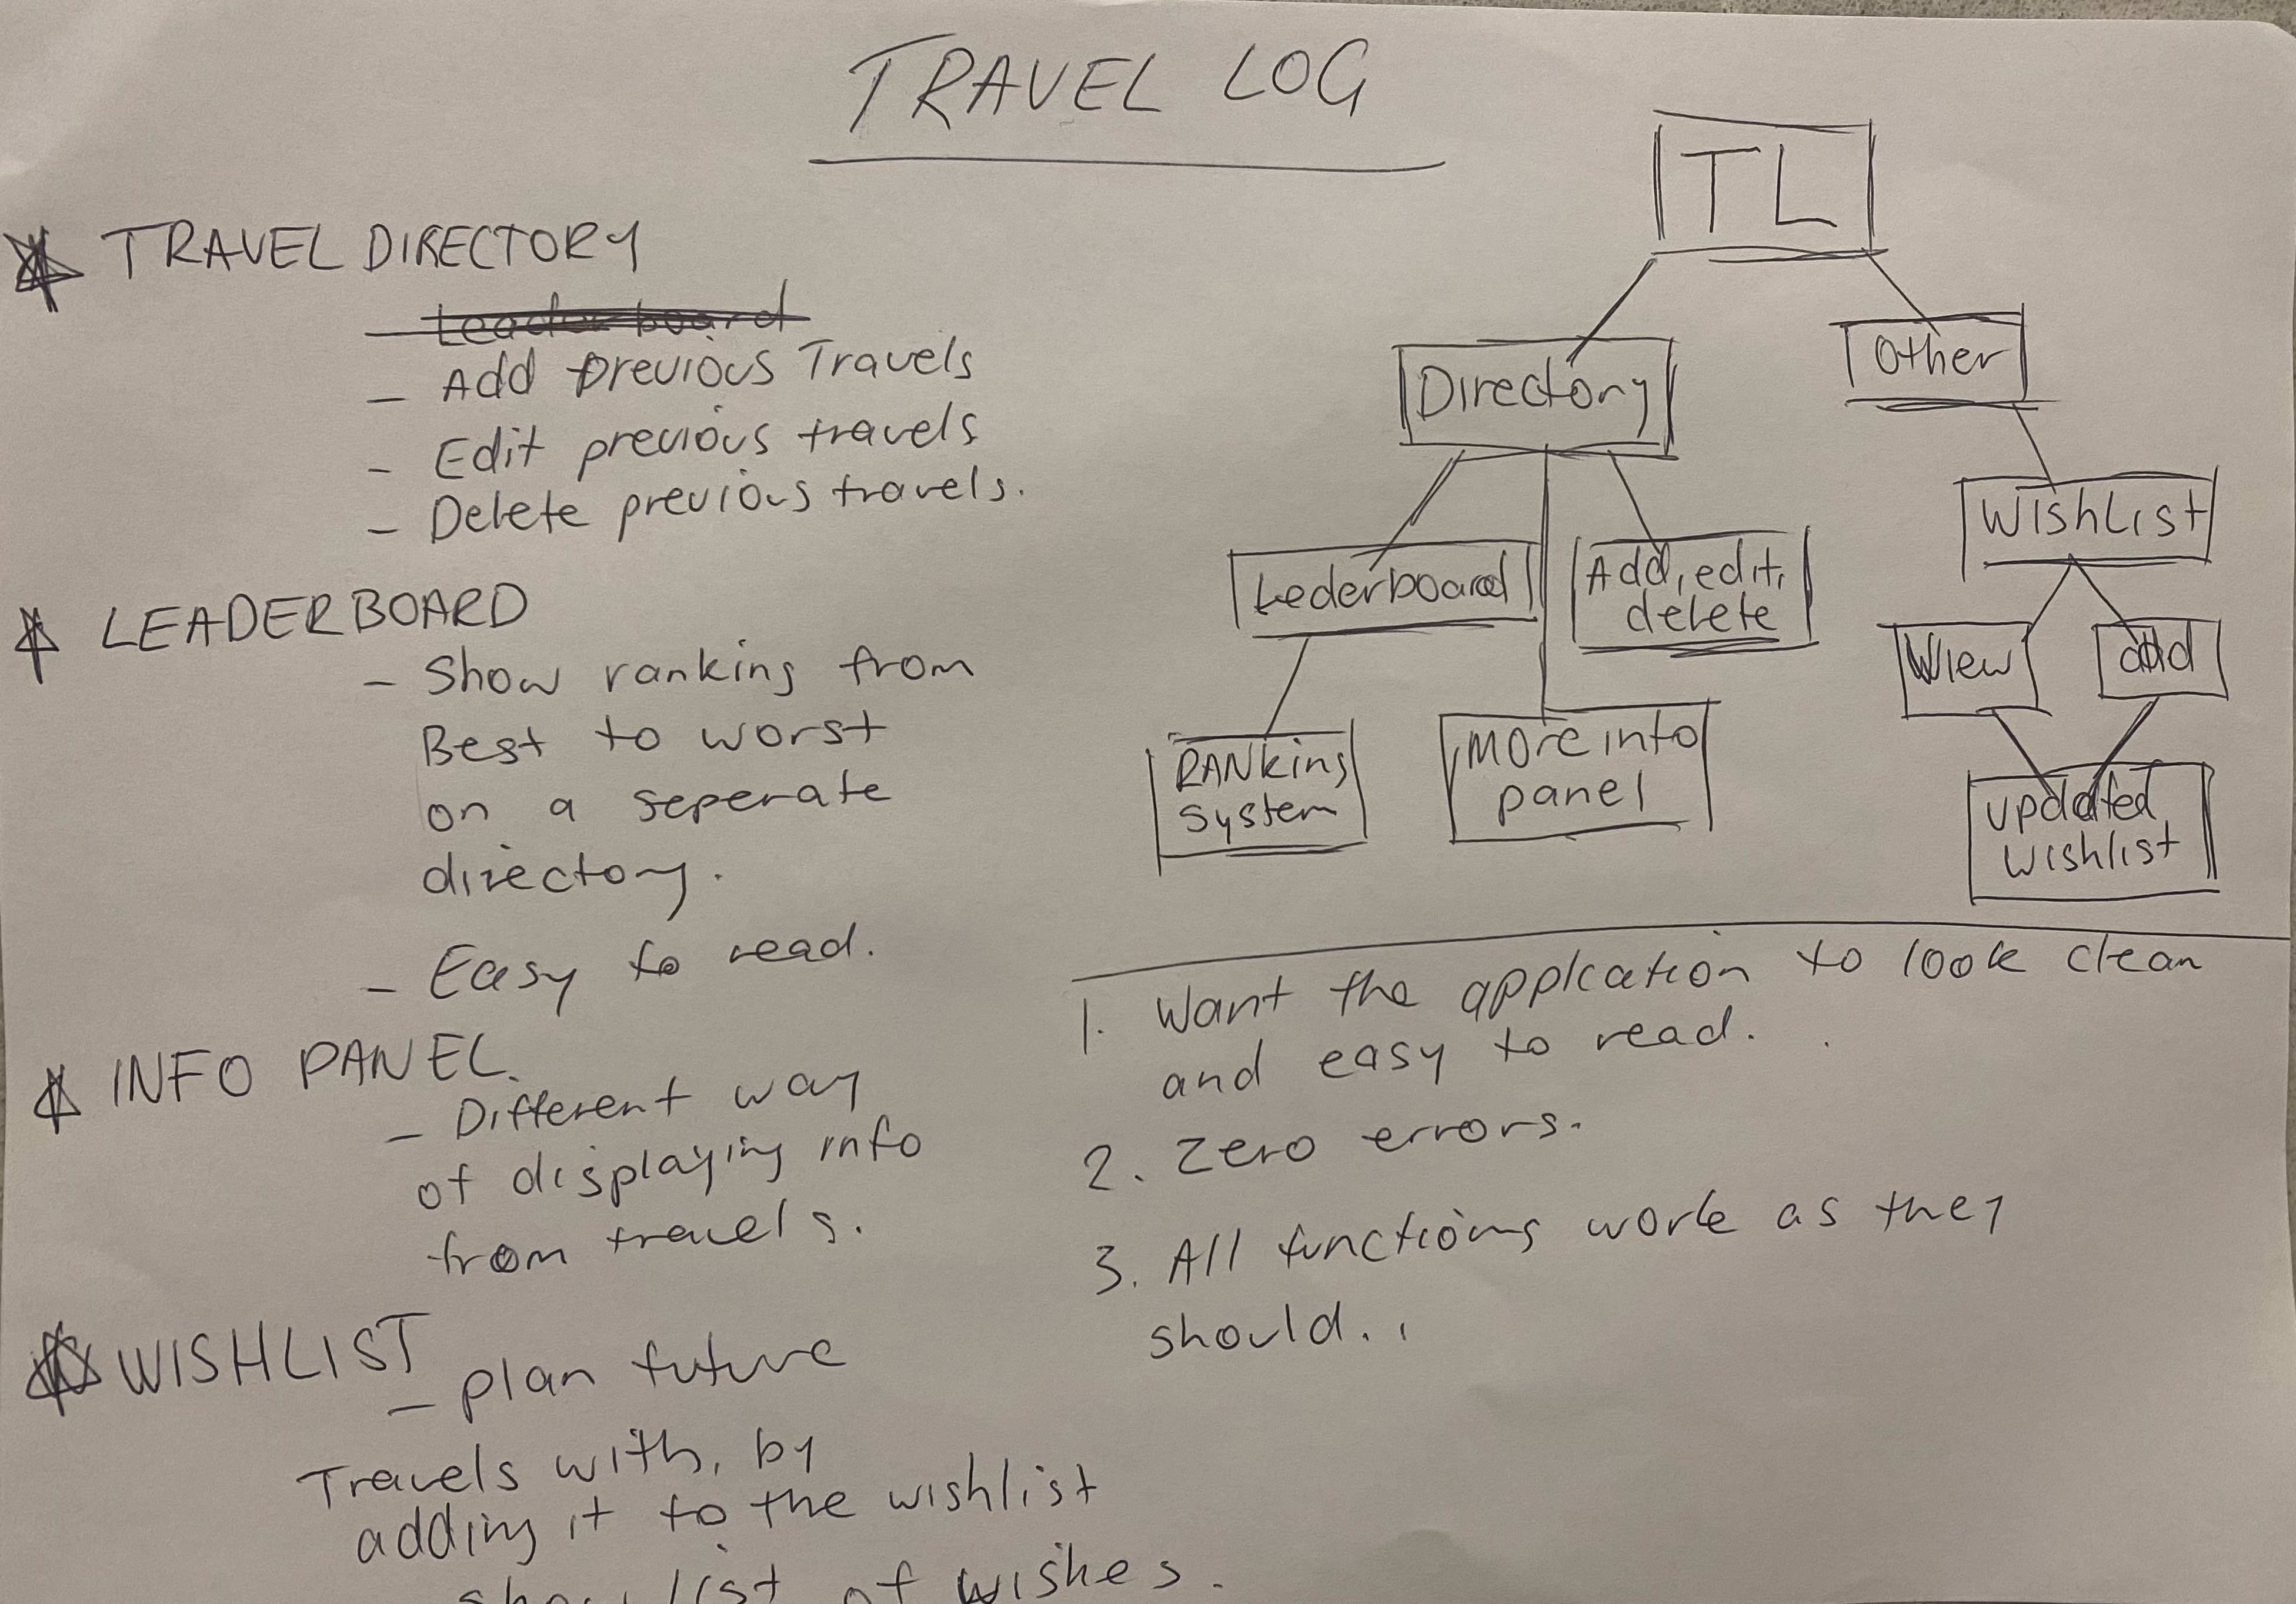 TRAVEL LOG
* TRAVEL DIRECTORY
- Leaderboard
- Add previous Travels
- Edit previous travels
- Delete previous travels.
* LEADERBOARD
- Show ranking from
Best to worst
on a seperate
directory.
- Easy to read.
* INFO PANEL
- Different way
of displaying info
from travels.
* WISHLIST
- plan future
Travels with, by
adding it to the wishlist
show list of wishes.
TL
Directory
Other
Lederboard
Add, edit,
delete
WishList
View
add
RANking
system
More info
panel
updated
wishlist
1. Want the applcation to look clean
and easy to read.
2. Zero errors.
3. All functions work as they
should.